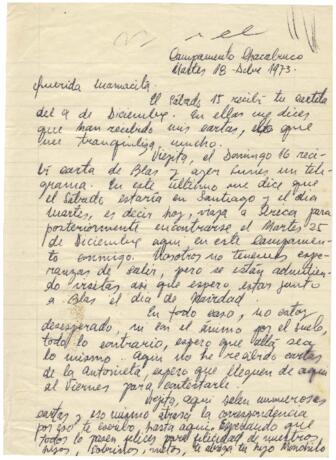 Campamento Chacabuco
Martes 18-Dicbre 1973.
Querida Mamacita.
El Sábado 15 recibí tu cartita
del 9 de Diciembre. En ellas me dices
que han recibido mis cartas, que
me tranquiliza mucho.
Viejita, el Domingo 16 reci-
bí carta de Blas y ayer Lunes un tele-
grama. En este último me dice que
el Sábado estaría en Santiago y el día
Martes, es decir hoy, viaja a Arica para
posteriormente encontrarse el Martes 25
de Diciembre aquí en este Campamen-
to conmigo. Nosotros no tenemos espe-
ranzas de salir, pero se están admitien-
do visitas así que espero estar junto
a Blas el día de Navidad.
En todo caso, no estoy
desesperado, ni con el ánimo por el suelo,
todo lo contrario, espero que allá sea
lo mismo. Aquí no he recibido cartas
de la Antonieta, espero que lleguen de aquí
al Viernes para contestarle.
Viejita, aquí salen numerosas
cartas y eso mismo atrasa la correspondencia
por eso te escribo, hasta aquí, esperando que
todos lo pasen felices para felicidad de nuestros
hijos, sobrinos, nietos, te abraza tu hijo